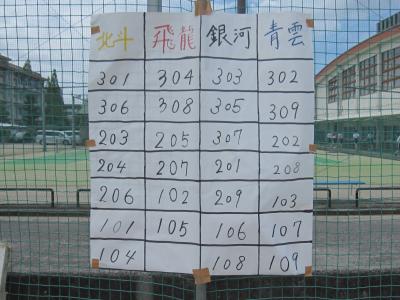 北斗 飛龍 銀河 青雲
301 304 303 302
306 308 305 309
203 205 307 202
204 207 201 208
206 102 209 103
101 105 106 107
104 108 109